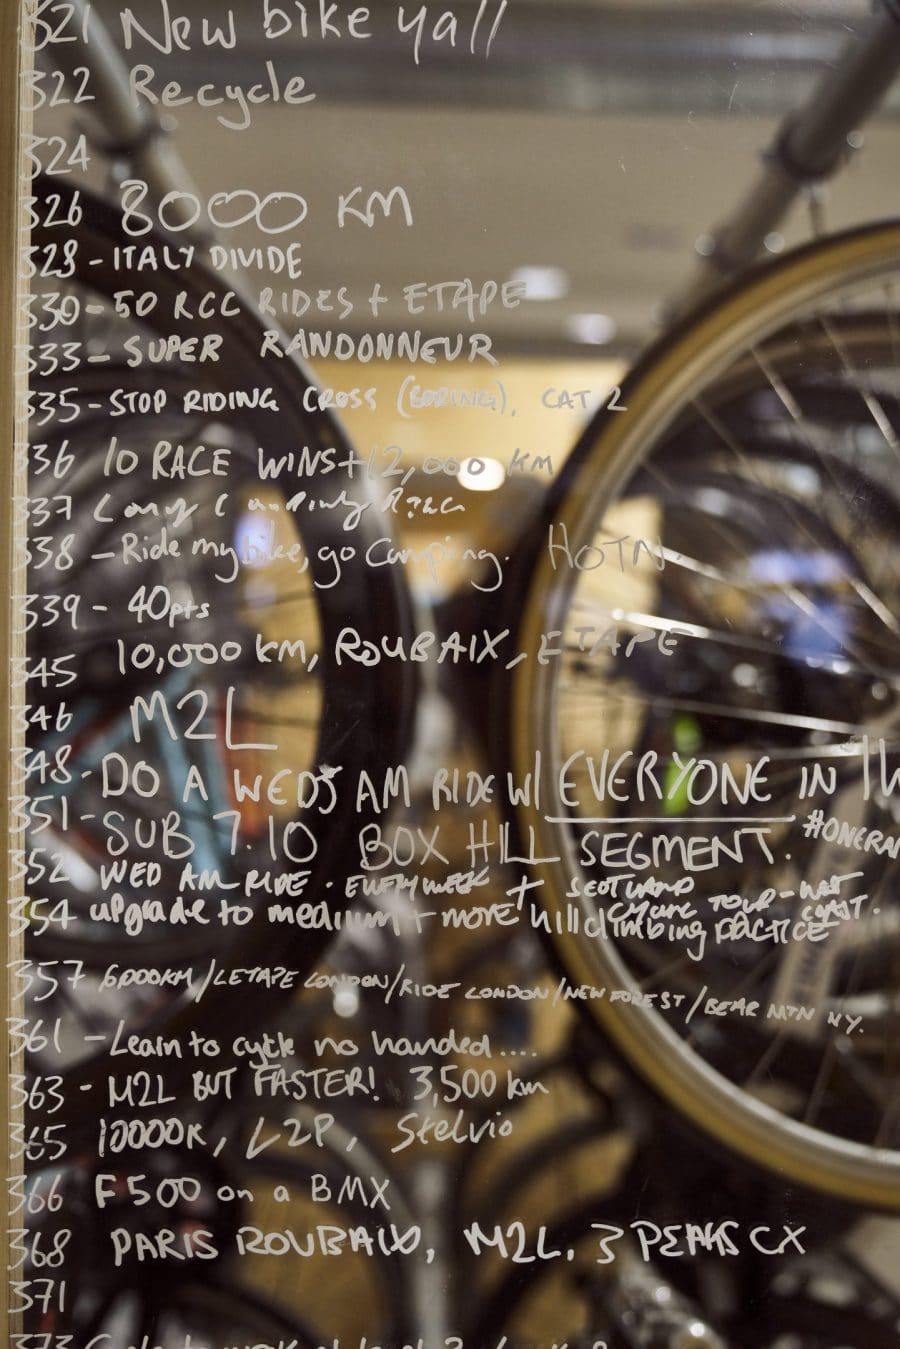 321 New bike yall
322 Recycle
324
326 8000 KM
328 - ITALY DIVIDE
330 - 50 RCC RIDES + ETAPE
333 - SUPER RANDONNEUR
335 - STOP RIDING CROSS (BORING), CAT 2
336 10 RACE WINS + 12,000 KM
337
338 - Ride my bike, go Camping. HOTN.
339 - 40pts
345 10,000 km, ROUBAIX, ETAPE
346 M2L
348 - DO A WEDS AM RIDE W/ EVERYONE IN
351 - SUB 7.10 BOX HILL SEGMENT.
352 WED AM RIDE. EVERY WEEK + SCOTLAND TOUR - WEST COAST.
354 upgrade to medium + more hillclimbing practice
357 6000KM/LETAPE LONDON/RIDE LONDON/NEW FOREST/BEAR MTN NY.
361 - Learn to cycle no handed....
363 - M2L BUT FASTER! 3,500 km
365 10000K, L2P, Stelvio
366 F500 on a BMX
368 PARIS ROUBAIX, M2L. 3 PEAKS CX
371
373